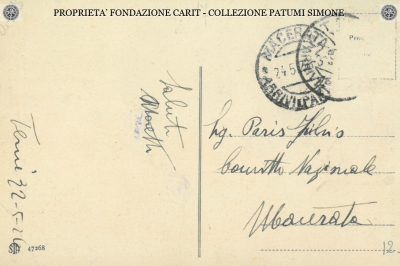 PROPRIETA' FONDAZIONE CARIT - COLLEZIONE PATUMI SIMONE
MACERATA
24.5
ARRIVI E PART
Saluti
Terni 22-5-26
Sig. Paris Silvio
Convitto Nazionale
Macerata
47268
12